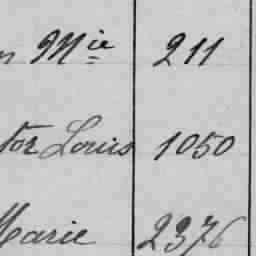 n Mie 211
tor Louis 1050
Marie 2376